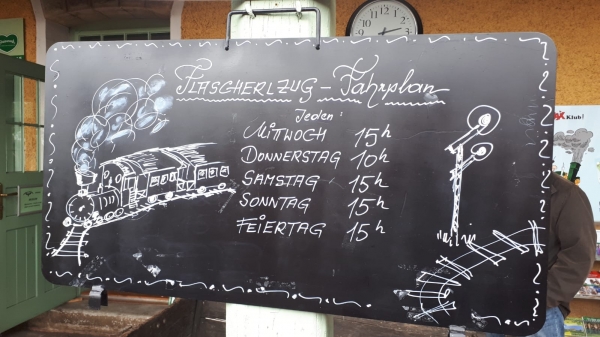 FLASCHERLZUG - Fahrplan
Jeden:
MITTWOCH 15h
DONNERSTAG 10h
SAMSTAG 15h
SONNTAG 15h
FEIERTAG 15h
Klub!